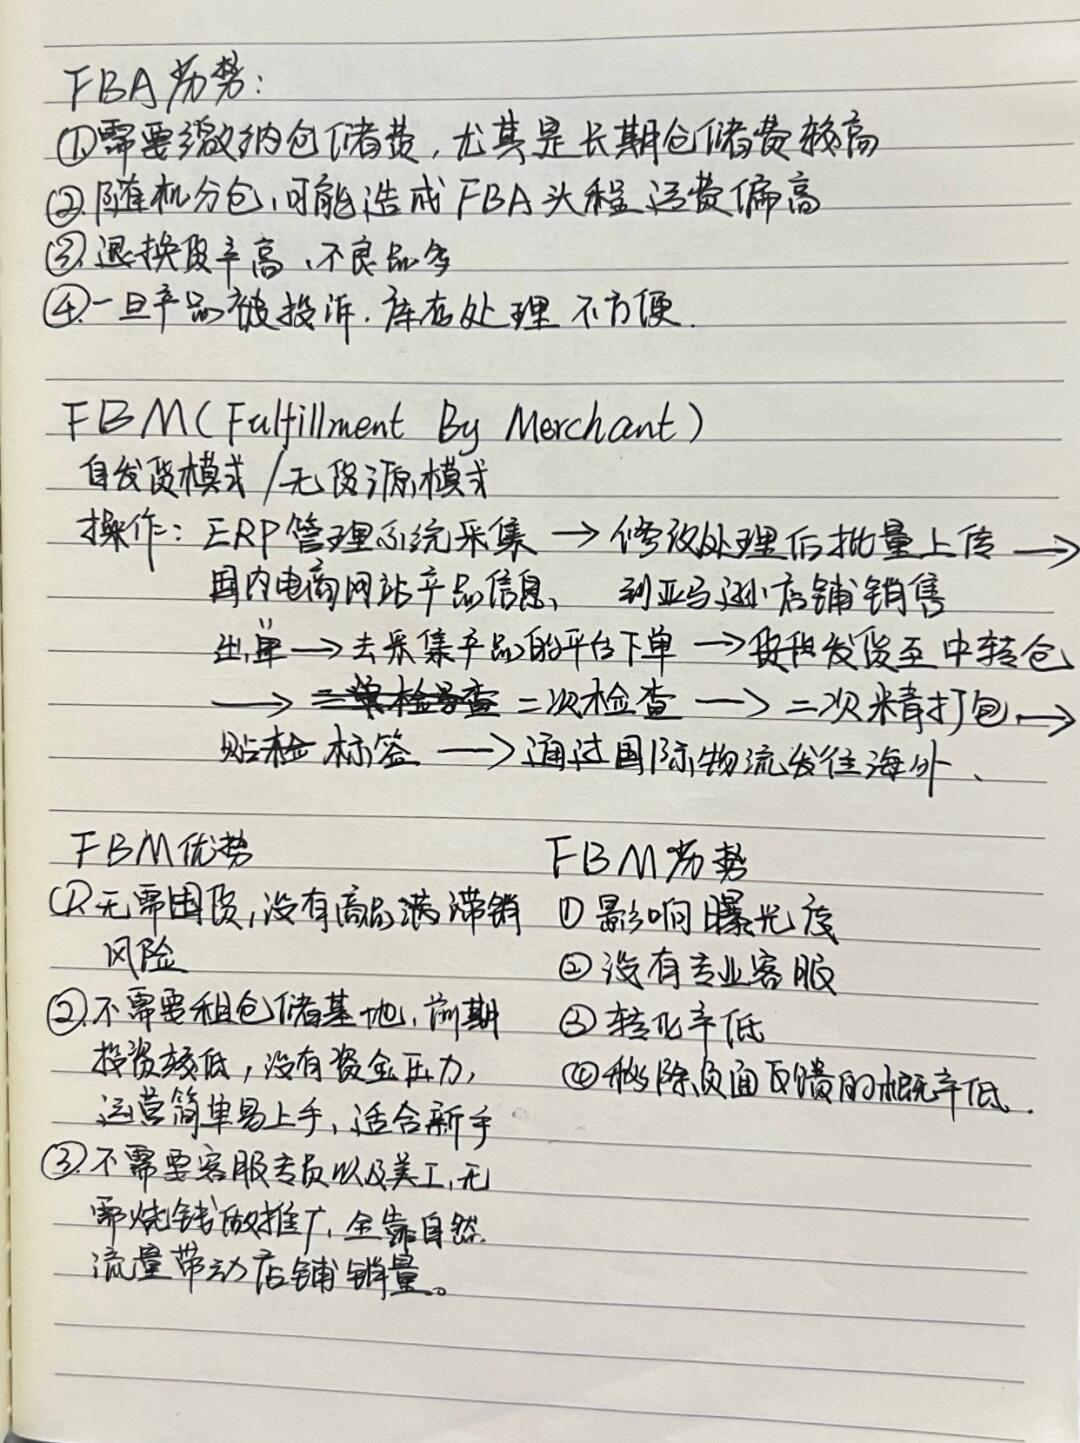 FBA劣势：
①需要缴纳仓储费，尤其是长期仓储费较高
②随机分仓、可能造成FBA头程运费偏高
③退换货率高、不良品多
④一旦产品被投诉.库存处理不方便.
FBM(Fulfillment By Merchant)
自发货模式/无货源模式
操作：ERP管理系统采集→修改处理后批量上传→
国内电商网站产品信息、 到亚马逊店铺销售
出单→去采集产品的平台下单→货
发货至中转仓
→二次检查→二次精打包→
贴标签→通过国际物流发往海外、
FBM优势
①无需囤货,没有商品滞销
风险
②不需要租仓储基地,前期
投资较低,没有资金压力,
运营简单易上手、适合新手
③不需要客服专员以及美工、无
需烧钱做推广,全靠自然
流量带动店铺销量。
FBM劣势
①影响曝光度
②没有专业客服
③转化率低
④移除负面反馈的概率低.